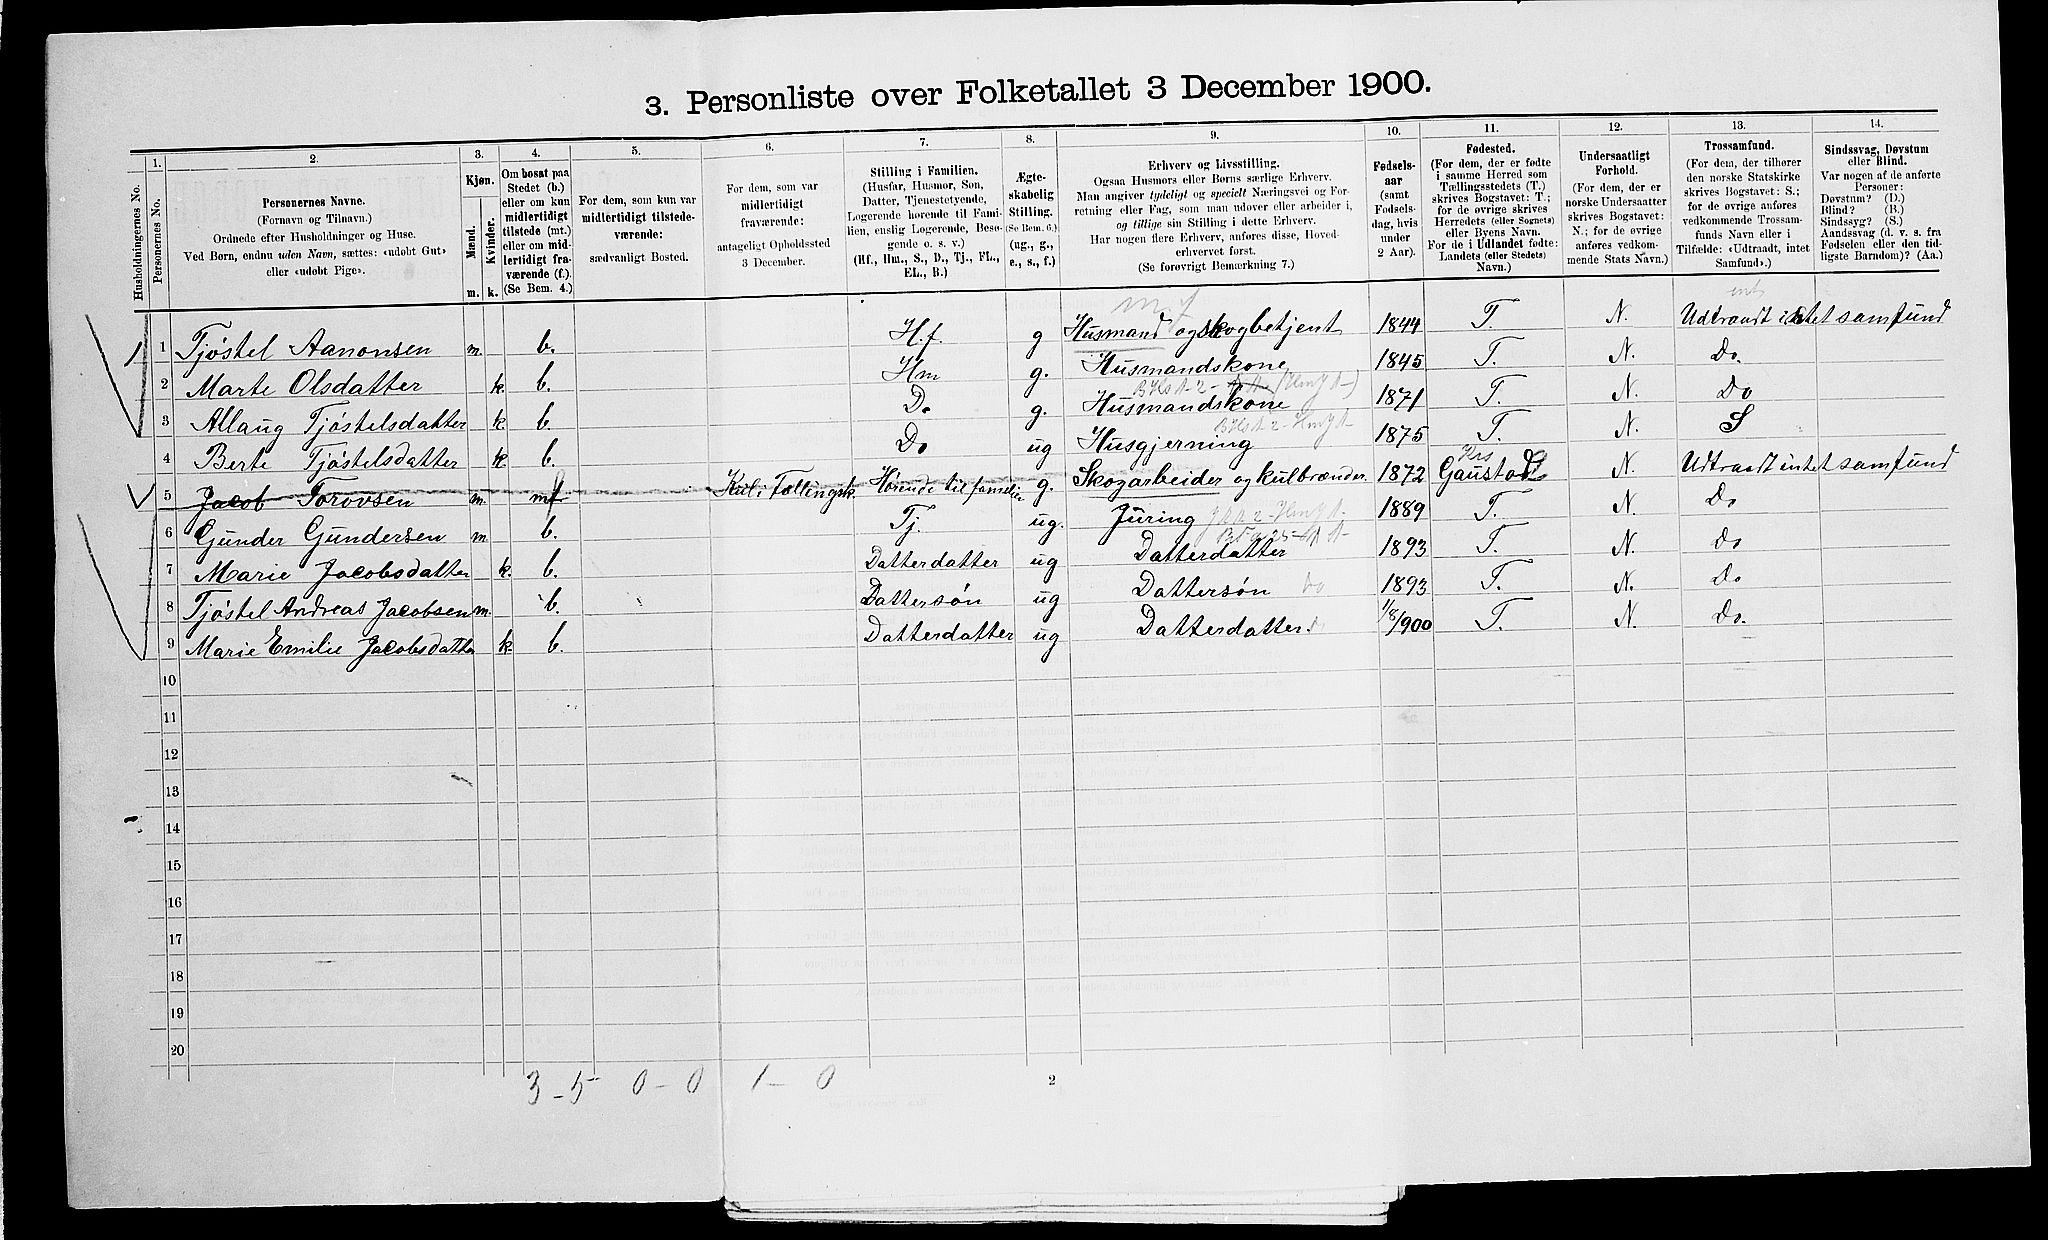 3. Personliste over Folketallet 3 December 1900.
1. 2. 3. 4. 5. 6. 7. 8. 9. 10. 11. 12. 13. 14.
Husholdningernes No.
Personernes No.
Personernes Navne.
(Fornavn og Tilnavn.)
Ordnede efter Husholdninger og Huse.
Ved Børn, endnu uden Navn, sættes: «udøbt Gut»
eller «udøbt Pige».
Kjøn.
Mænd.
Kvinder.
m. k.
Om bosat paa
Stedet (b.)
eller om kun
midlertidigt
tilstede (mt.)
eller om mid-
lertidigt fra-
værende (f.)
(Se Bem. 4.)
For dem, som kun var
midlertidigt tilstede-
værende:
sædvanligt Bosted.
For dem, som var
midlertidigt
fraværende:
antageligt Opholdssted
3 December.
Stilling i Familien.
(Husfar, Husmor, Søn,
Datter, Tjenestetyende,
Logerende hørende til Fami-
lien, enslig Logerende, Besø-
gende o. s. v.)
(Hf., Hm., S., D., Tj., FL.,
EL., B.)
Ægte-
skabelig
Stilling.
(Se Bem. 6.)
(ug., g.,
e., s., f.)
Erhverv og Livsstilling.
Ogsaa Husmors eller Børns særlige Erhverv.
Man angiver tydeligt og specielt Næringsvei og For-
retning eller Fag, som man udøver eller arbeider i,
og tillige sin Stilling i dette Erhverv.
Har nogen flere Erhverv, anføres disse, Hoved-
erhvervet først.
(Se forøvrigt Bemærkning 7.)
Fødsels-
aar
(samt
Fødsels-
dag, hvis
under
2 Aar).
Fødested.
(For dem, der er fødte
i samme Herred som
Tællingsstedets (T.)
skrives Bogstavet: T.;
for de øvrige skrives
Herredets (eller Sognets)
eller Byens Navn.
For de i Udlandet fødte:
Landets (eller Stedets)
Navn.)
Undersaatligt
Forhold.
(For dem, der er
norske Undersaatter
skrives Bogstavet:
N.; for de øvrige
anføres vedkom-
mende Stats Navn.)
Trossamfund.
(For dem, der tilhører
den norske Statskirke
skrives Bogstavet: S.;
for de øvrige anføres
vedkommende Trossam-
funds Navn eller i
Tilfælde: «Udtraadt, intet
Samfund».)
Sindssvag, Døvstum
eller Blind.
Var nogen af de anførte
Personer:
Døvstum? (D.)
Blind? (B.)
Sindssyg? (S.)
Aandssvag (d. v. s. fra
Fødselen eller den tid-
ligste Barndom)? (Aa.)
1 1 Tjøstel Aanonsen m. b. H.f. g Husmand og skogbetjent 1844 T. N. Udtraadt intet samfund
2 Marte Olsdatter k b. Hm g. Husmandskone 1845 T. N. Do.
3 Allaug Tjøstelsdatter k b. D. g. Husmandskone 1871 T. N. Do
4 Berte Tjøstelsdatter k b. Do ug Husgjerning 1875 T. N. S
5 Jacob Torovsen m. Hørende til familien g. Skogarbeider og kulbrænder 1872 N. Udtraadt intet samfund
6 Gunder Gundersen m. b. Tj. ug. 1889 T. N. Do
7 Marie Jacobsdatter k. b. Datterdatter ug Datterdatter 1893 T. N. Do
8 Tjøstel Andreas Jacobsen m. b. Dattersøn ug Dattersøn 1893 T. N. Do
9 Marie Emilie Jacobsdatter k b. Datterdatter ug Datterdatter 1/8/900 T. N. Do.
10
11
12
13
14
15
16
17
18
19
20
3 - 5 0 - 0 1 - 0
2